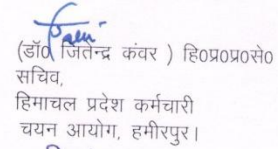 (डॉ0 जितेन्द्र कंवर ) हि0प्र0प्र0से0
सचिव,
हिमाचल प्रदेश कर्मचारी
चयन आयोग, हमीरपुर।